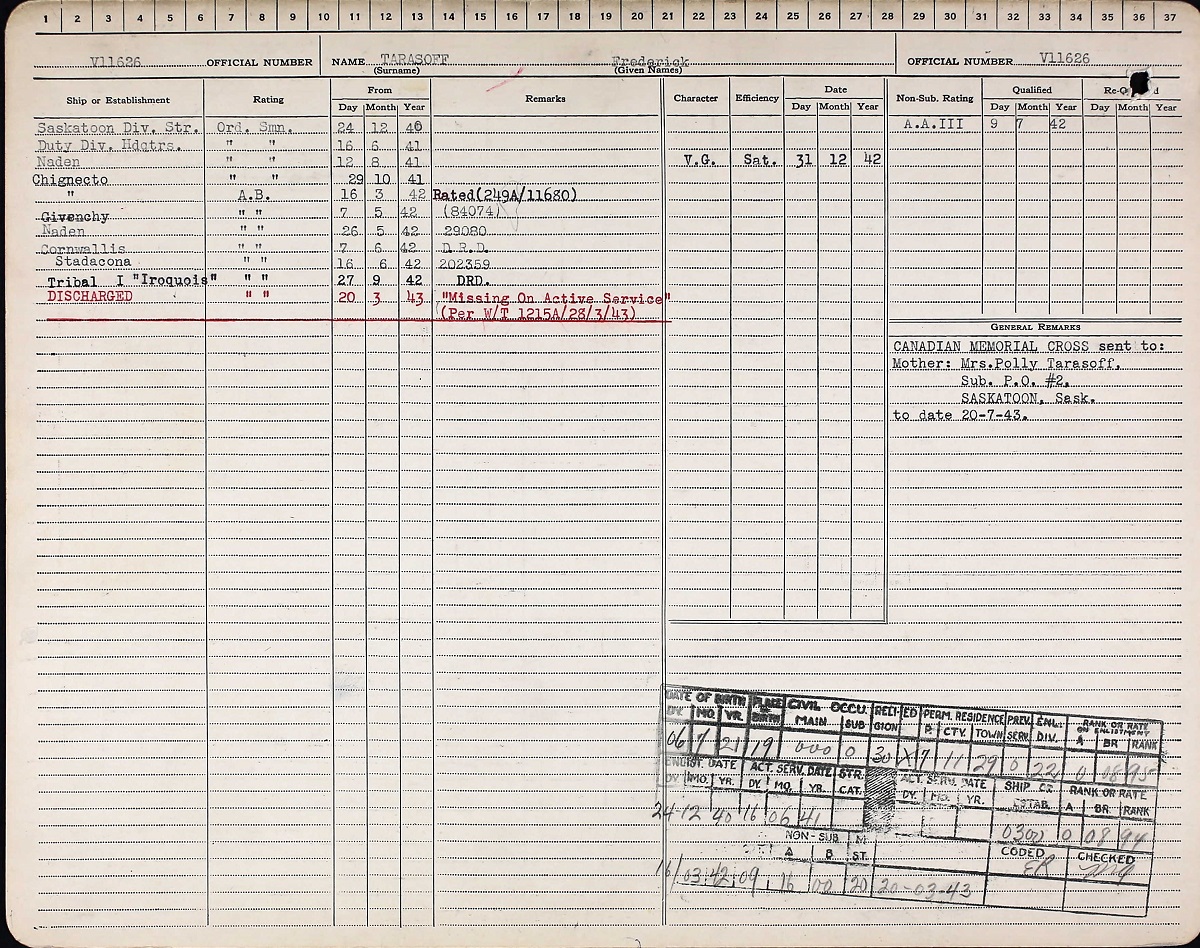 1 2 3 4 5 6 7 8 9 10 11 12 13 14 15 16 17 18 19 20 21 22 23 24 25 26 27 28 29 30 31 32 33 34 35 36 37
V11626 OFFICIAL NUMBER NAME TARASOFF Frederick OFFICIAL NUMBER V11626
(Surname) (Given Names)
Ship or Establishment Rating From Remarks Character Efficiency Date Non-Sub. Rating Qualified
Day Month Year Day Month Year Day Month Year Day Month Year
Saskatoon Div. Str. Ord. Smn. 24 12 40 A.A.III 9 7 42
Duty Div. Hdqtrs. " " 16 6 41
Naden " " 12 8 41 V.G. Sat. 31 12 42
Chignecto " " 29 10 41
" A.B. 16 3 42 Rated(249A/11680)
Givenchy " " 7 5 42 (84074)
Naden " " 26 5 42 29080
Cornwallis " " 7 6 42 D.R.D.
Stadacona " " 16 6 42 202359
Tribal I "Iroquois" " " 27 9 42 DRD.
DISCHARGED " " 20 3 43 "Missing On Active Service"
(Per W/T 1215A/28/3/43)
GENERAL REMARKS
CANADIAN MEMORIAL CROSS sent to:
Mother: Mrs.Polly Tarasoff,
Sub. P.O. #2,
SASKATOON, Sask.
to date 20-7-43.
DATE OF BIRTH PLACE OF BIRTH CIVIL OCCU. RELIGION ED PERM. RESIDENCE PREV. SERV. ENL. DIV. RANK OR RATE ON ENLISTMENT
DY. MO. YR. MAIN SUB P. CTY. TOWN A BR RANK
06 7 21 19 000 0 30 X 7 11 29 0 22 0 08 95
ENLIST. DATE ACT. SERV. DATE STR. CAT. ACT. SERV. DATE SHIP OR ESTAB. RANK OR RATE
DY. MO. YR. DY. MO. YR. DY. MO. YR. A BR RANK
24 12 40 16 06 41 0300 0 08 94
NON-SUB M ST. CODED CHECKED
A B ER
16/03 42 09 16 00 20 20-03-43